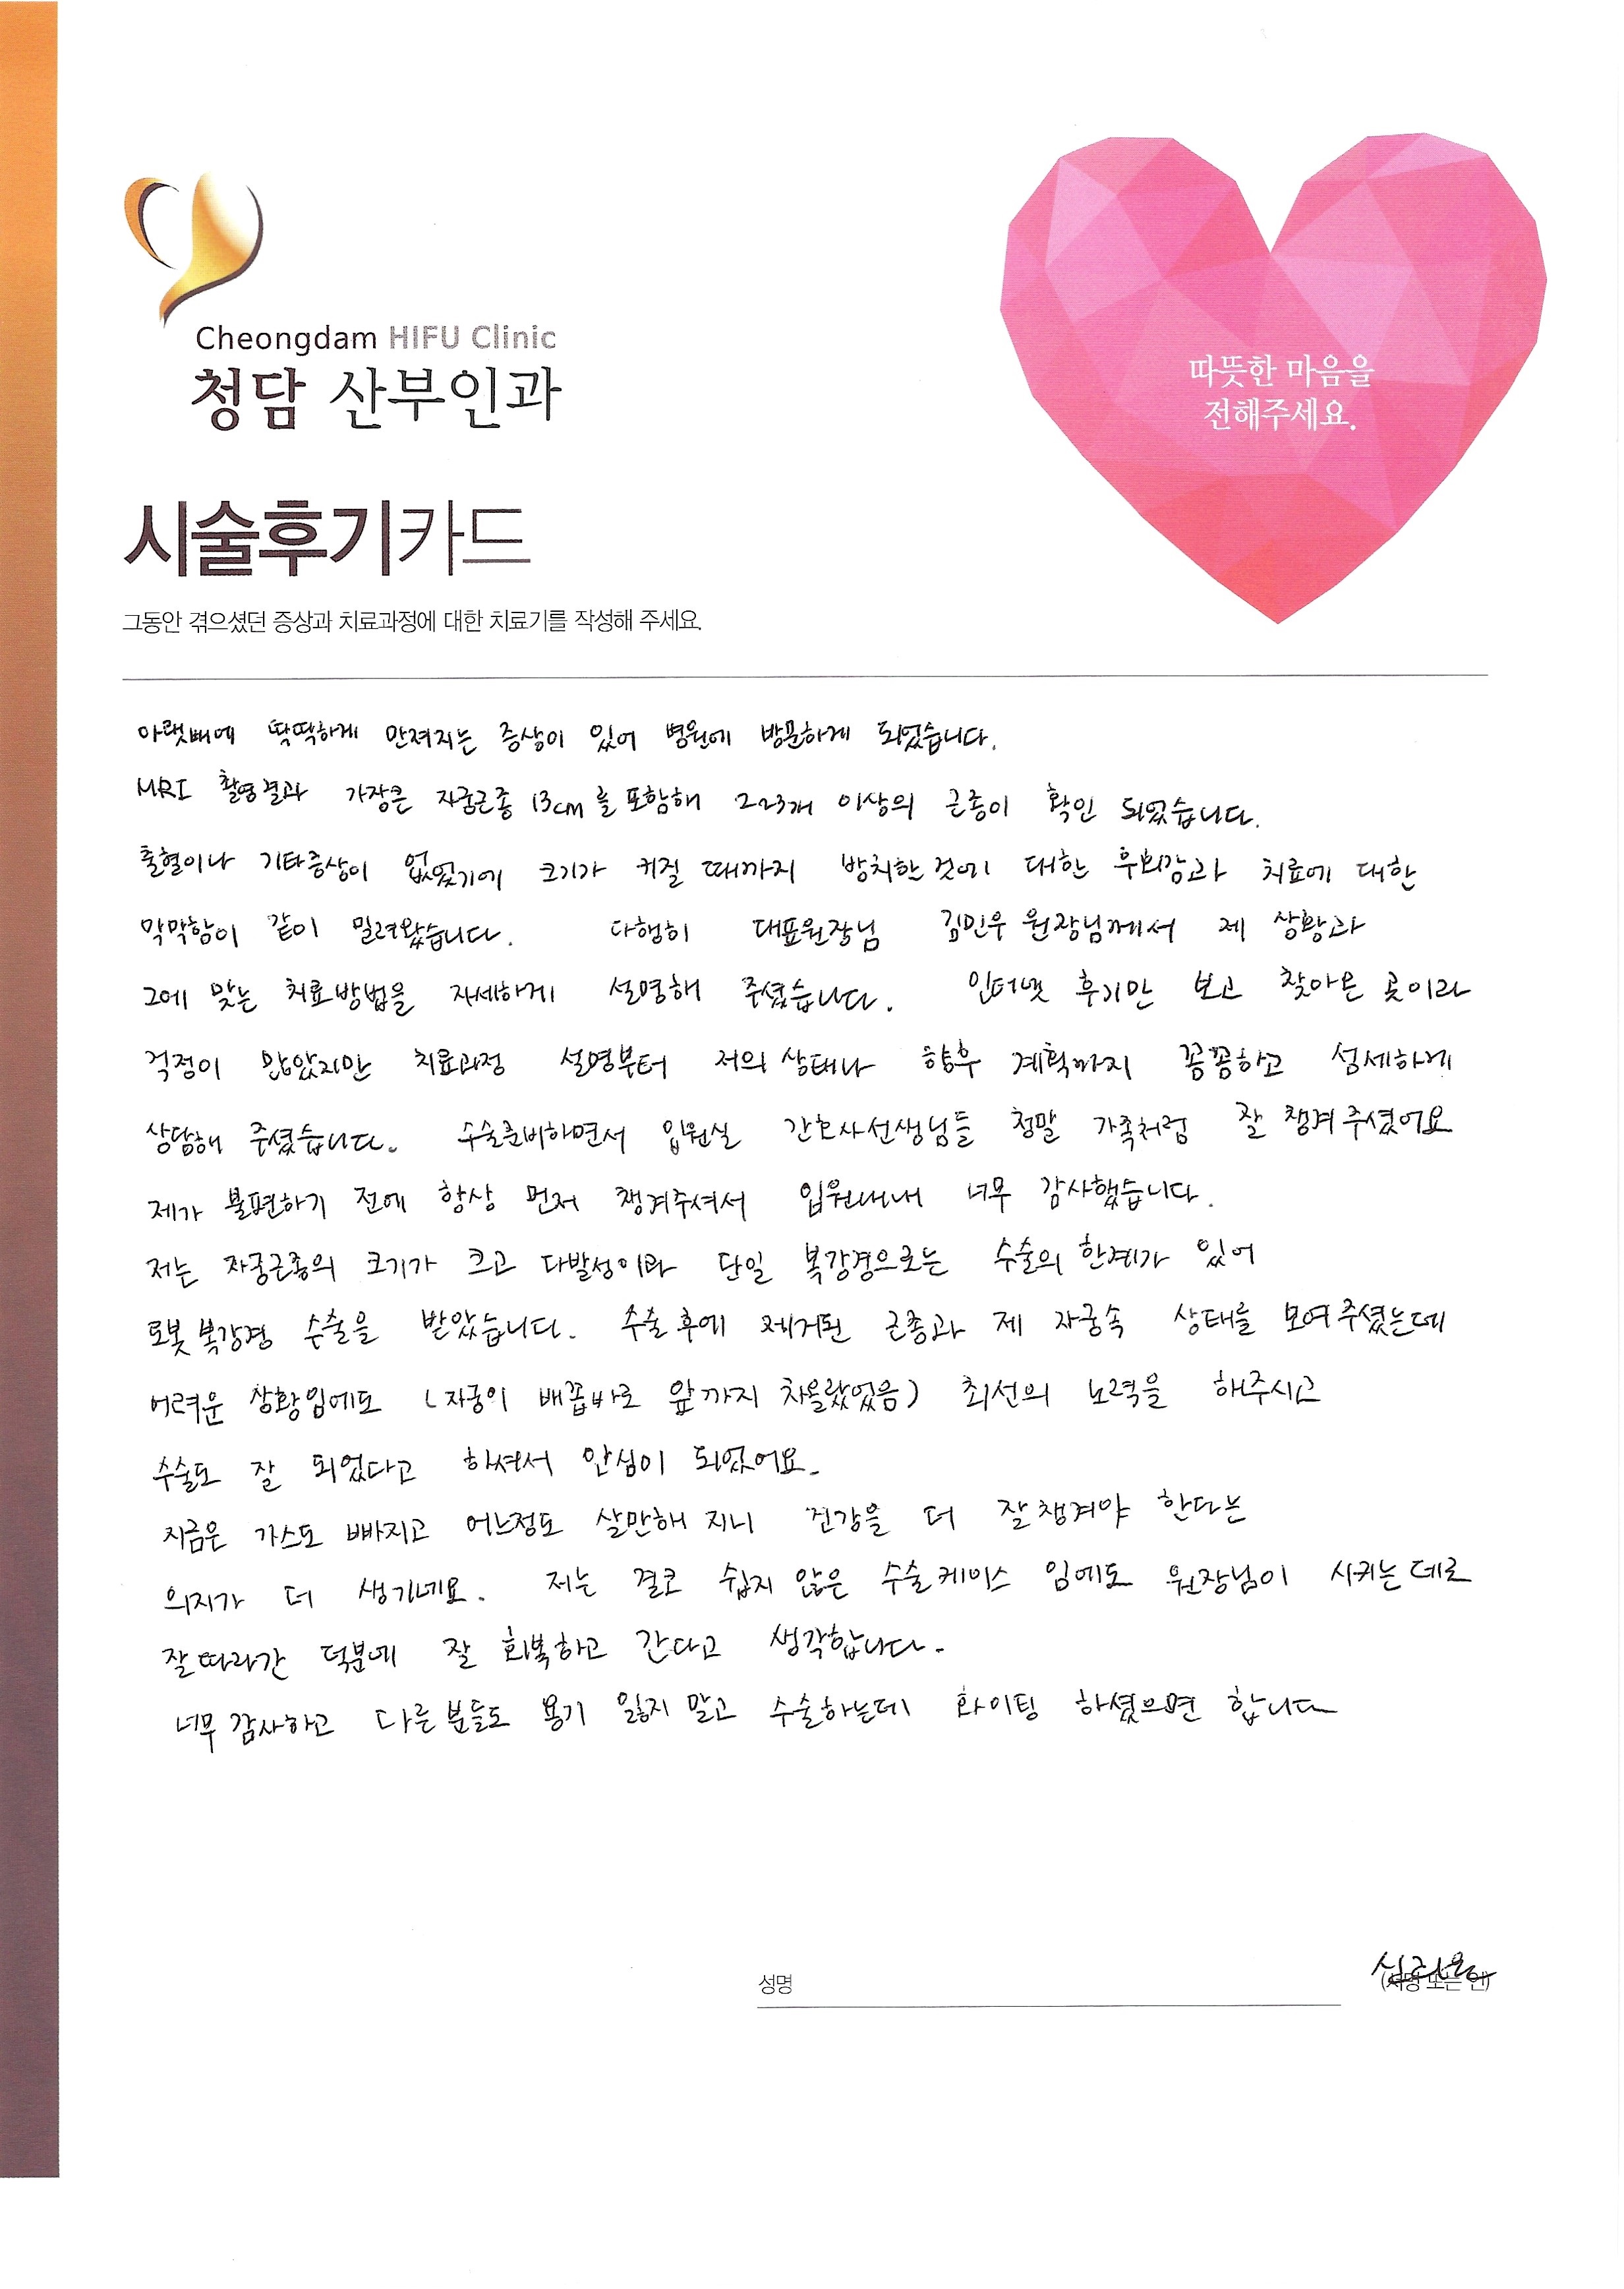 Cheongdam HIFU Clinic
청담 산부인과
따뜻한 마음을
전해주세요.
시술후기카드
그동안 겪으셨던 증상과 치료과정에 대한 치료기를 작성해 주세요.
아랫배에 딱딱하게 만져지는 증상이 있어 병원에 방문하게 되었습니다.
MRI 촬영결과 가장큰 자궁근종 13cm를 포함해 이상의 근종이 확인 되었습니다.
출혈이나 기타증상이 없었기에 크기가 커질 때까지 방치한 것에 대한 후회감과 치료에 대한
막막함이 같이 밀려왔습니다. 다행히 대표원장님 김민우 원장님께서 제 상황과
그에 맞는 치료방법을 자세하게 설명해 주셨습니다. 인터넷 후기만 보고 찾아온 곳이라
걱정이 많았지만 치료과정 설명부터 저의 상태나 향후 계획까지 꼼꼼하고 섬세하게
상담해 주셨습니다. 수술준비하면서 입원실 간호사선생님들 정말 가족처럼 잘 챙겨주셨어요
제가 불편하기 전에 항상 먼저 챙겨주셔서 입원내내 너무 감사했습니다.
저는 자궁근종의 크기가 크고 다발성이라 단일 복강경으로는 수술의 한계가 있어
로봇복강경 수술을 받았습니다. 수술후에 제거된 근종과 제 자궁속 상태를 보여주셨는데
어려운 상황임에도 (자궁이 배꼽바로 앞까지 차올랐었음) 최선의 노력을 해주시고
수술도 잘 되었다고 하셔서 안심이 되었어요.
지금은 가스도 빠지고 어느정도 살만해 지니 건강을 더 잘챙겨야 한다는
의지가 더 생기네요. 저는 결코 쉽지 않은 수술케이스 임에도 원장님이 시키는데로
잘따라간 덕분에 잘 회복하고 간다고 생각합니다.
너무 감사하고 다른분들도 용기 잃지 말고 수술하는데 화이팅 하셨으면 합니다
성명
(서명 또는 인)